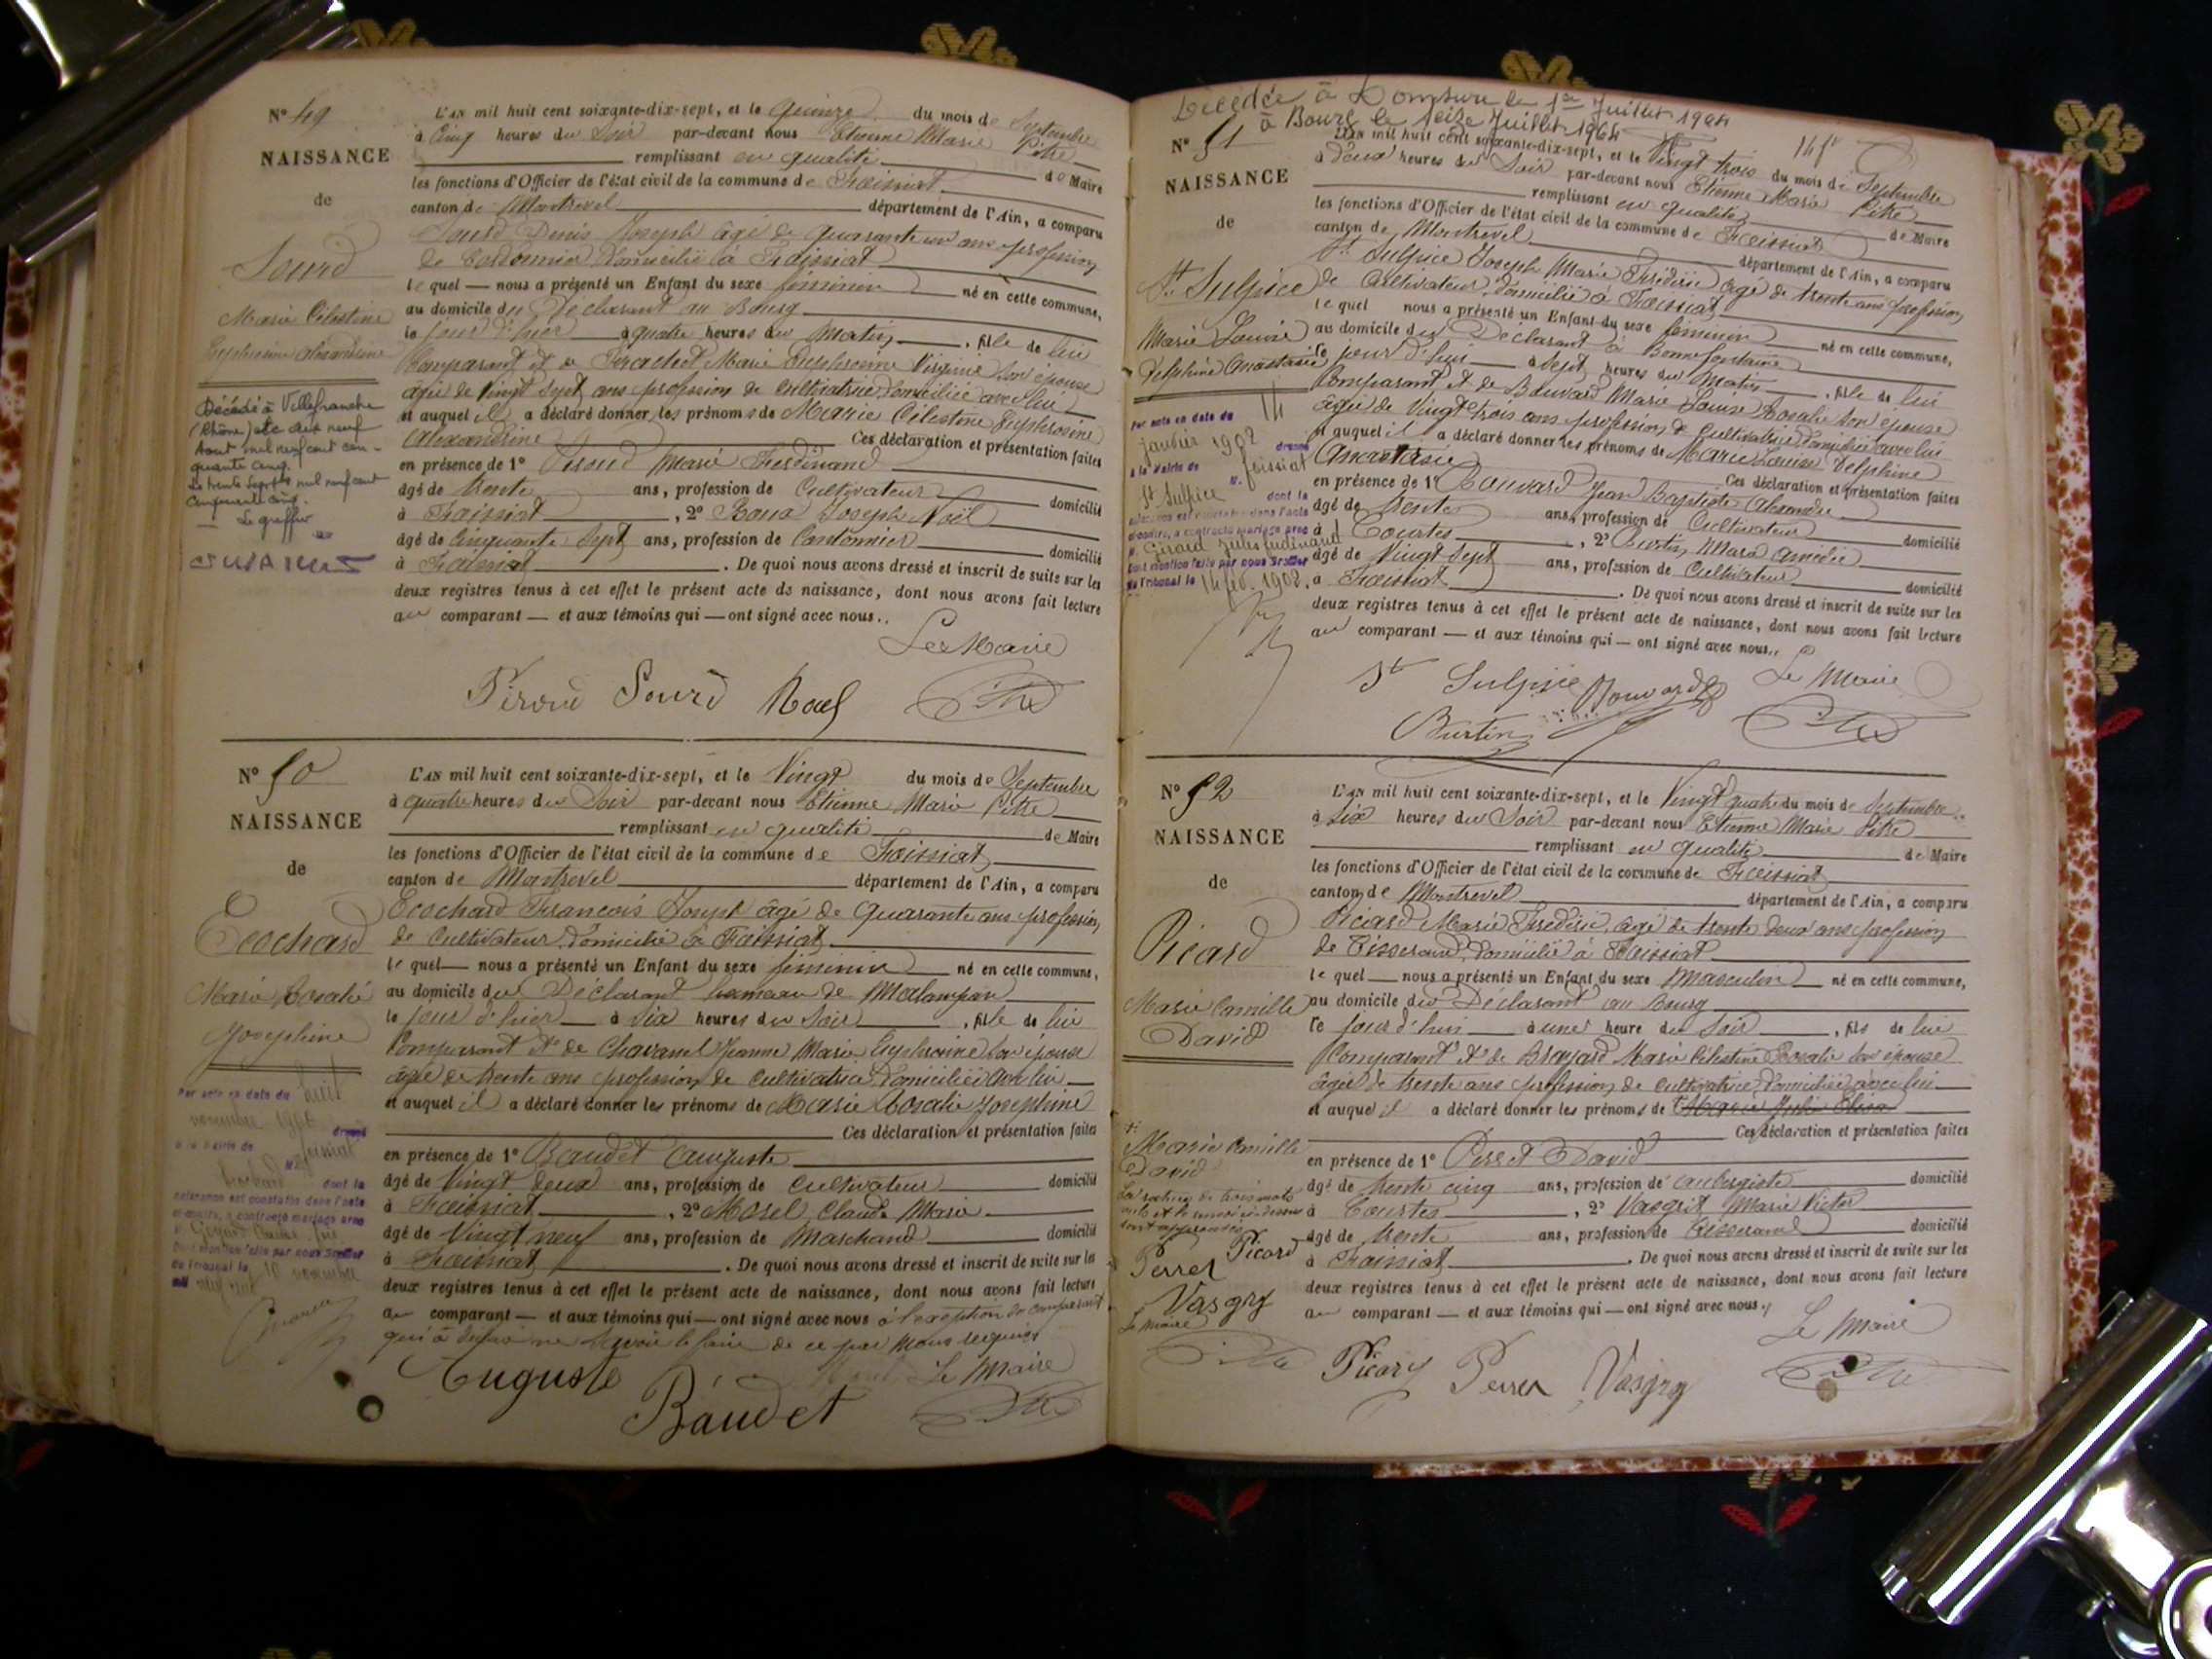 N° 49
NAISSANCE
de
Sourd
Marie Célestine
Euphrosine Alexandrine
Décédé à Villefranche
(Rhône) le dix neuf
Aout mil neuf cent cin-
quante cinq.
Le trente Sept mil neuf cent
cinquante cinq.
Le greffier
L'AN mil huit cent soixante-dix-sept, et le quinze du mois de Septembre
à Cinq heures du Soir par-devant nous Etienne Marie Pitre
remplissant en qualité de Maire
les fonctions d'Officier de l'état civil de la commune de Foissiat
canton de Montrevel département de l'Ain, a comparu
Sourd Denis Joseph âgé de quarante un ans profession
de Cordonnier Domicilié à Foissiat
le quel — nous a présenté un Enfant du sexe féminin né en cette commune,
au domicile du Déclarant au Bourg
le jour d'hier à quatre heures du Matin, fille de lui
Comparant et de Marie Euphrosine Virginie son épouse
âgée de Vingt Sept ans profession de Cultivatrice Domiciliée avec lui
et auquel il a déclaré donner les prénoms de Marie Célestine Euphrosine
Alexandrine Ces déclaration et présentation faites
en présence de 1° Piroud Marie Ferdinand
âgé de trente ans, profession de Cultivateur domicilié
à Foissiat, 2° Joseph Noël
âgé de Cinquante Sept ans, profession de Cantonnier domicilié
à Foissiat. De quoi nous avons dressé et inscrit de suite sur les
deux registres tenus à cet effet le présent acte de naissance, dont nous avons fait lecture
au comparant — et aux témoins qui — ont signé avec nous.
Le Maire
Piroud Sourd
N° 50
NAISSANCE
de
Ecochard
Marie Rosalie
Josephine
Par acte en date du huit
novembre
à la Mairie de Foissiat
dont la
célébration est constatée dans l'acte
ci-contre, a contracté mariage avec
Dont mention faite par nous Greffier
du Tribunal le 10 novembre
mil neuf cent
L'AN mil huit cent soixante-dix-sept, et le Vingt du mois de Septembre
à quatre heures du Soir par-devant nous Etienne Marie Pitre
remplissant en qualité de Maire
les fonctions d'Officier de l'état civil de la commune de Foissiat
canton de Montrevel département de l'Ain, a comparu
Ecochard François Joseph âgé de quarante ans profession
de Cultivateur Domicilié à Foissiat
le quel — nous a présenté un Enfant du sexe féminin né en cette commune,
au domicile du Déclarant hameau de
le jour d'hier à six heures du Soir, fille de lui
Comparant et de Chavanel Jeanne Marie Euphrosine son épouse
âgée de trente ans profession de Cultivatrice Domiciliée avec lui
et auquel il a déclaré donner les prénoms de Marie Rosalie Josephine
Ces déclaration et présentation faites
en présence de 1° Baudet Auguste
âgé de Vingt deux ans, profession de Cultivateur domicilié
à Foissiat, 2° Morel Claude Marie
âgé de Vingt neuf ans, profession de Marchand domicilié
à Foissiat. De quoi nous avons dressé et inscrit de suite sur les
deux registres tenus à cet effet le présent acte de naissance, dont nous avons fait lecture
au comparant — et aux témoins qui — ont signé avec nous à l'exception du comparant
qui a déclaré ne savoir le faire de ce par Nous requis
Le Maire
Auguste
Baudet
Décédée à Domsure le 1er Juillet 1964
à Bourg le seize Juillet 1964
N° 51
NAISSANCE
de
St Sulpice
Marie Louise
Delphine Anastasie
Par acte en date du 14
janvier 1902 dressé
à la Mairie de Foissiat
St Sulpice dont la
célébration est constatée dans l'acte
ci-contre, a contracté mariage avec
M. Girard Jules Ferdinand
Dont mention faite par nous Greffier
du Tribunal le 14 fév. 1902.
L'AN mil huit cent soixante-dix-sept, et le Vingt trois du mois de Septembre
à deux heures du Soir par-devant nous Etienne Marie Pitre
remplissant en qualité de Maire
les fonctions d'Officier de l'état civil de la commune de Foissiat
canton de Montrevel département de l'Ain, a comparu
St Sulpice Joseph Marie Frédéric âgé de trente ans profession
de Cultivateur, Domicilié à Foissiat
le quel nous a présenté un Enfant du sexe féminin né en cette commune,
au domicile du Déclarant à Bonnefontaine
le jour d'hui à Sept heures du Matin, fille de lui
Comparant et de Bouvard Marie Louise Rosalie son épouse
âgée de Vingt trois ans profession de Cultivatrice Domiciliée avec lui
et auquel il a déclaré donner les prénoms de Marie Louise Delphine
Anastasie Ces déclaration et présentation faites
en présence de 1° Bouvard Jean Baptiste
âgé de trente ans, profession de Cultivateur domicilié
à Courtes, 2° Burtin Marie Amédée
âgé de Vingt Sept ans, profession de Cultivateur domicilié
à Foissiat. De quoi nous avons dressé et inscrit de suite sur les
deux registres tenus à cet effet le présent acte de naissance, dont nous avons fait lecture
au comparant — et aux témoins qui — ont signé avec nous.
St Sulpice Bouvard Le Maire
Burtin
N° 52
NAISSANCE
de
Picard
Marie Camille
David
Marie Camille
David
Perret Picard
Vasgry
Le Maire
L'AN mil huit cent soixante-dix-sept, et le Vingt quatre du mois de Septembre
à six heures du Soir par-devant nous Etienne Marie Pitre
remplissant en qualité de Maire
les fonctions d'Officier de l'état civil de la commune de Foissiat
canton de Montrevel département de l'Ain, a comparu
Picard Marie Frédéric, âgé de trente deux ans profession
de Tisserand, Domicilié à Foissiat
le quel — nous a présenté un Enfant du sexe Masculin né en cette commune,
au domicile du Déclarant au Bourg
le jour d'hui à une heure du Soir, fils de lui
Comparant et de Marie Célestine Rosalie son épouse
âgée de trente ans profession de Cultivatrice Domiciliée avec lui
et auquel il a déclaré donner les prénoms de
Ces déclaration et présentation faites
en présence de 1° Perret David
âgé de trente cinq ans, profession de aubergiste domicilié
à Courtes, 2° Vasgry Marie Victor
âgé de trente ans, profession de Tisserand domicilié
à Foissiat. De quoi nous avons dressé et inscrit de suite sur les
deux registres tenus à cet effet le présent acte de naissance, dont nous avons fait lecture
au comparant — et aux témoins qui — ont signé avec nous.
Le Maire
Picard Perret Vasgry